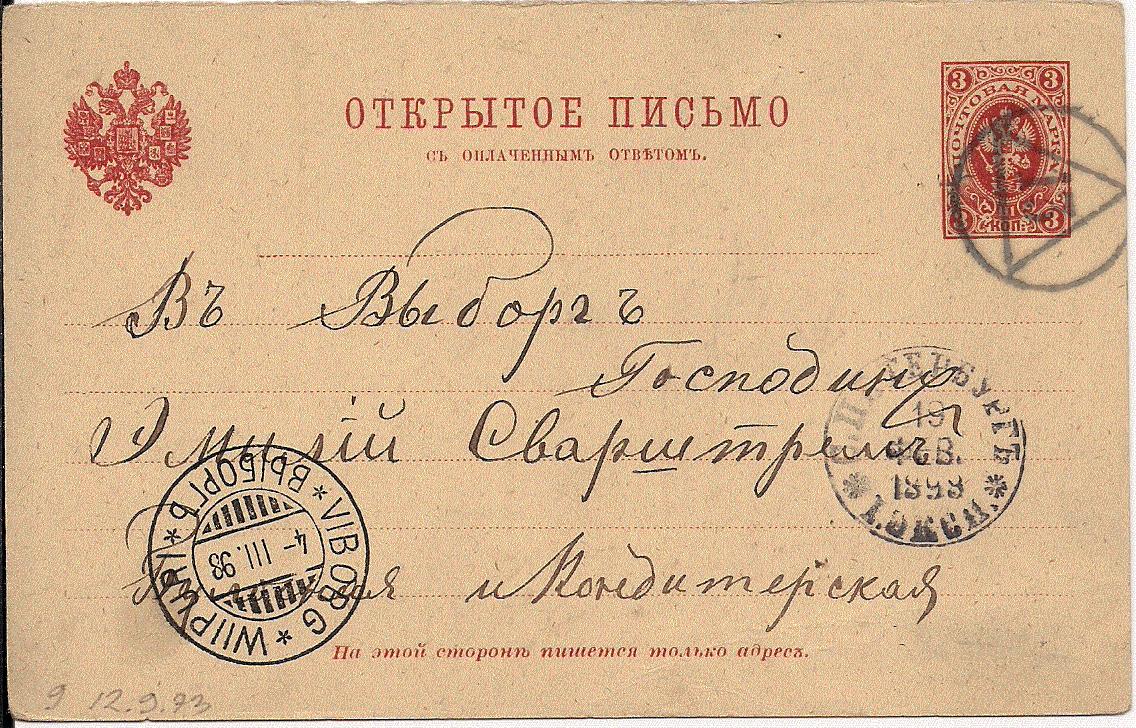 ОТКРЫТОЕ ПИСЬМО
СЪ ОПЛАЧЕННЫМЪ ОТВѢТОМЪ.
3 3
ПОЧТОВАЯ МАРКА
3 КОП. 3
Въ Выборгъ
Господину
Эмилій Сварштремъ
С.ПЕТЕРБУРГЪ
19
ФЕВ.
1893
1.ЭКСП.
и Кондитерская
WIIPURI * ВЫБОРГЪ * VIBORG *
4-III.93
На этой сторонѣ пишется только адресъ.
9 12.9.93